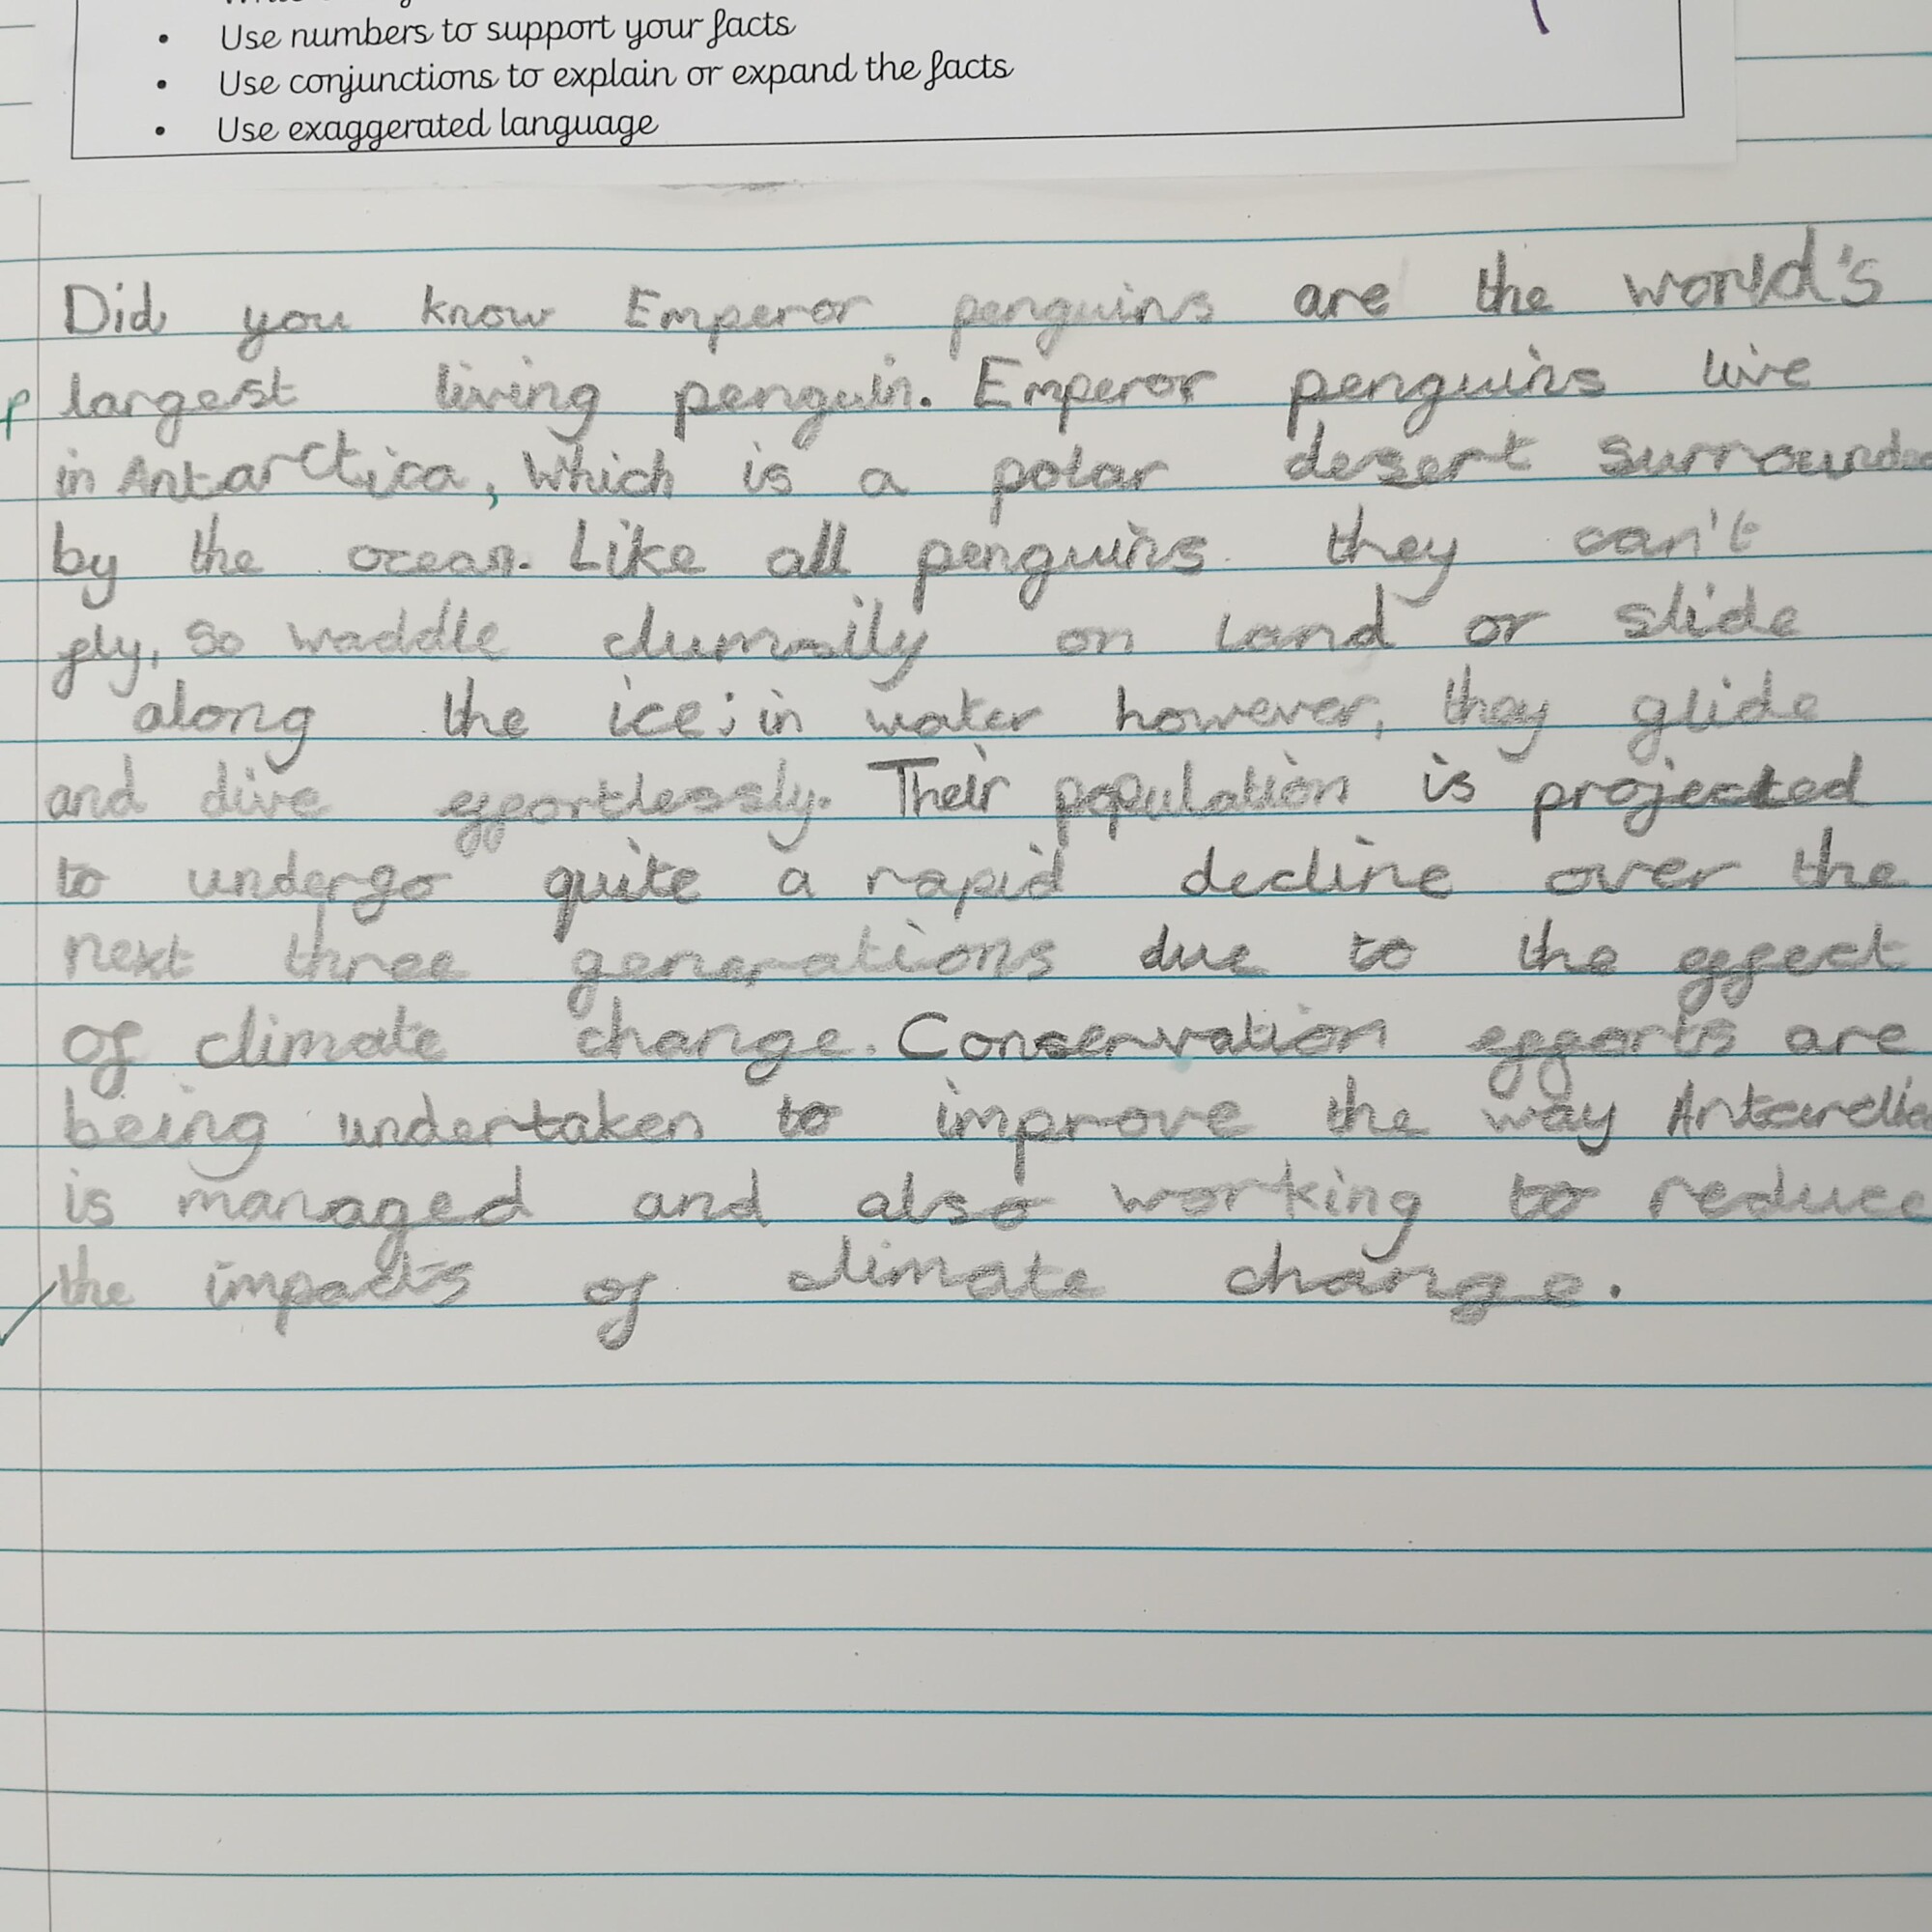 • Use numbers to support your facts
• Use conjunctions to explain or expand the facts
• Use exaggerated language
Did you know Emperor penguins are the world's
p largest living penguin. Emperor penguins live
in Antarctica, which is a polar desert surrounded
by the ocean. Like all penguins they can't
fly, so waddle clumsily on land or slide
along the ice; in water however, they glide
and dive effortlessly. Their population is projected
to undergo quite a rapid decline over the
next three generations due to the effect
of climate change. Conservation efforts are
being undertaken to improve the way Antarctica
is managed and also working to reduce
the impacts of climate change.